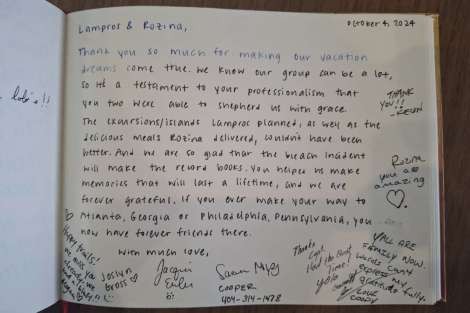 October 4, 2024
Lampros & Rozina,
Thank you so much for making our vacation
dreams come true. We know our group can be a lot,
so it's a testament to your professionalism that
you two were able to shepherd us with grace.
The excursions/islands Lampros planned, as well as the
delicious meals Rozina delivered, wouldn't have been
better. And we are so glad that the beach incident
will make the record books. You helped us make
memories that will last a lifetime, and we are
forever grateful. If you ever make your way to
Atlanta, Georgia or Philadelphia, Pennsylvania, you
now have forever friends there.
With much love,
THANK
YOU!!
Rozina
you are
amazing
Y'ALL ARE
FAMILY NOW.
Words can't
express my
gratitude fully.
LOVE
COOPY
Thanks
Had the Best
Time!
YOLO
Joslyn
Gross
Jacqui
COOPER
404-314-1478